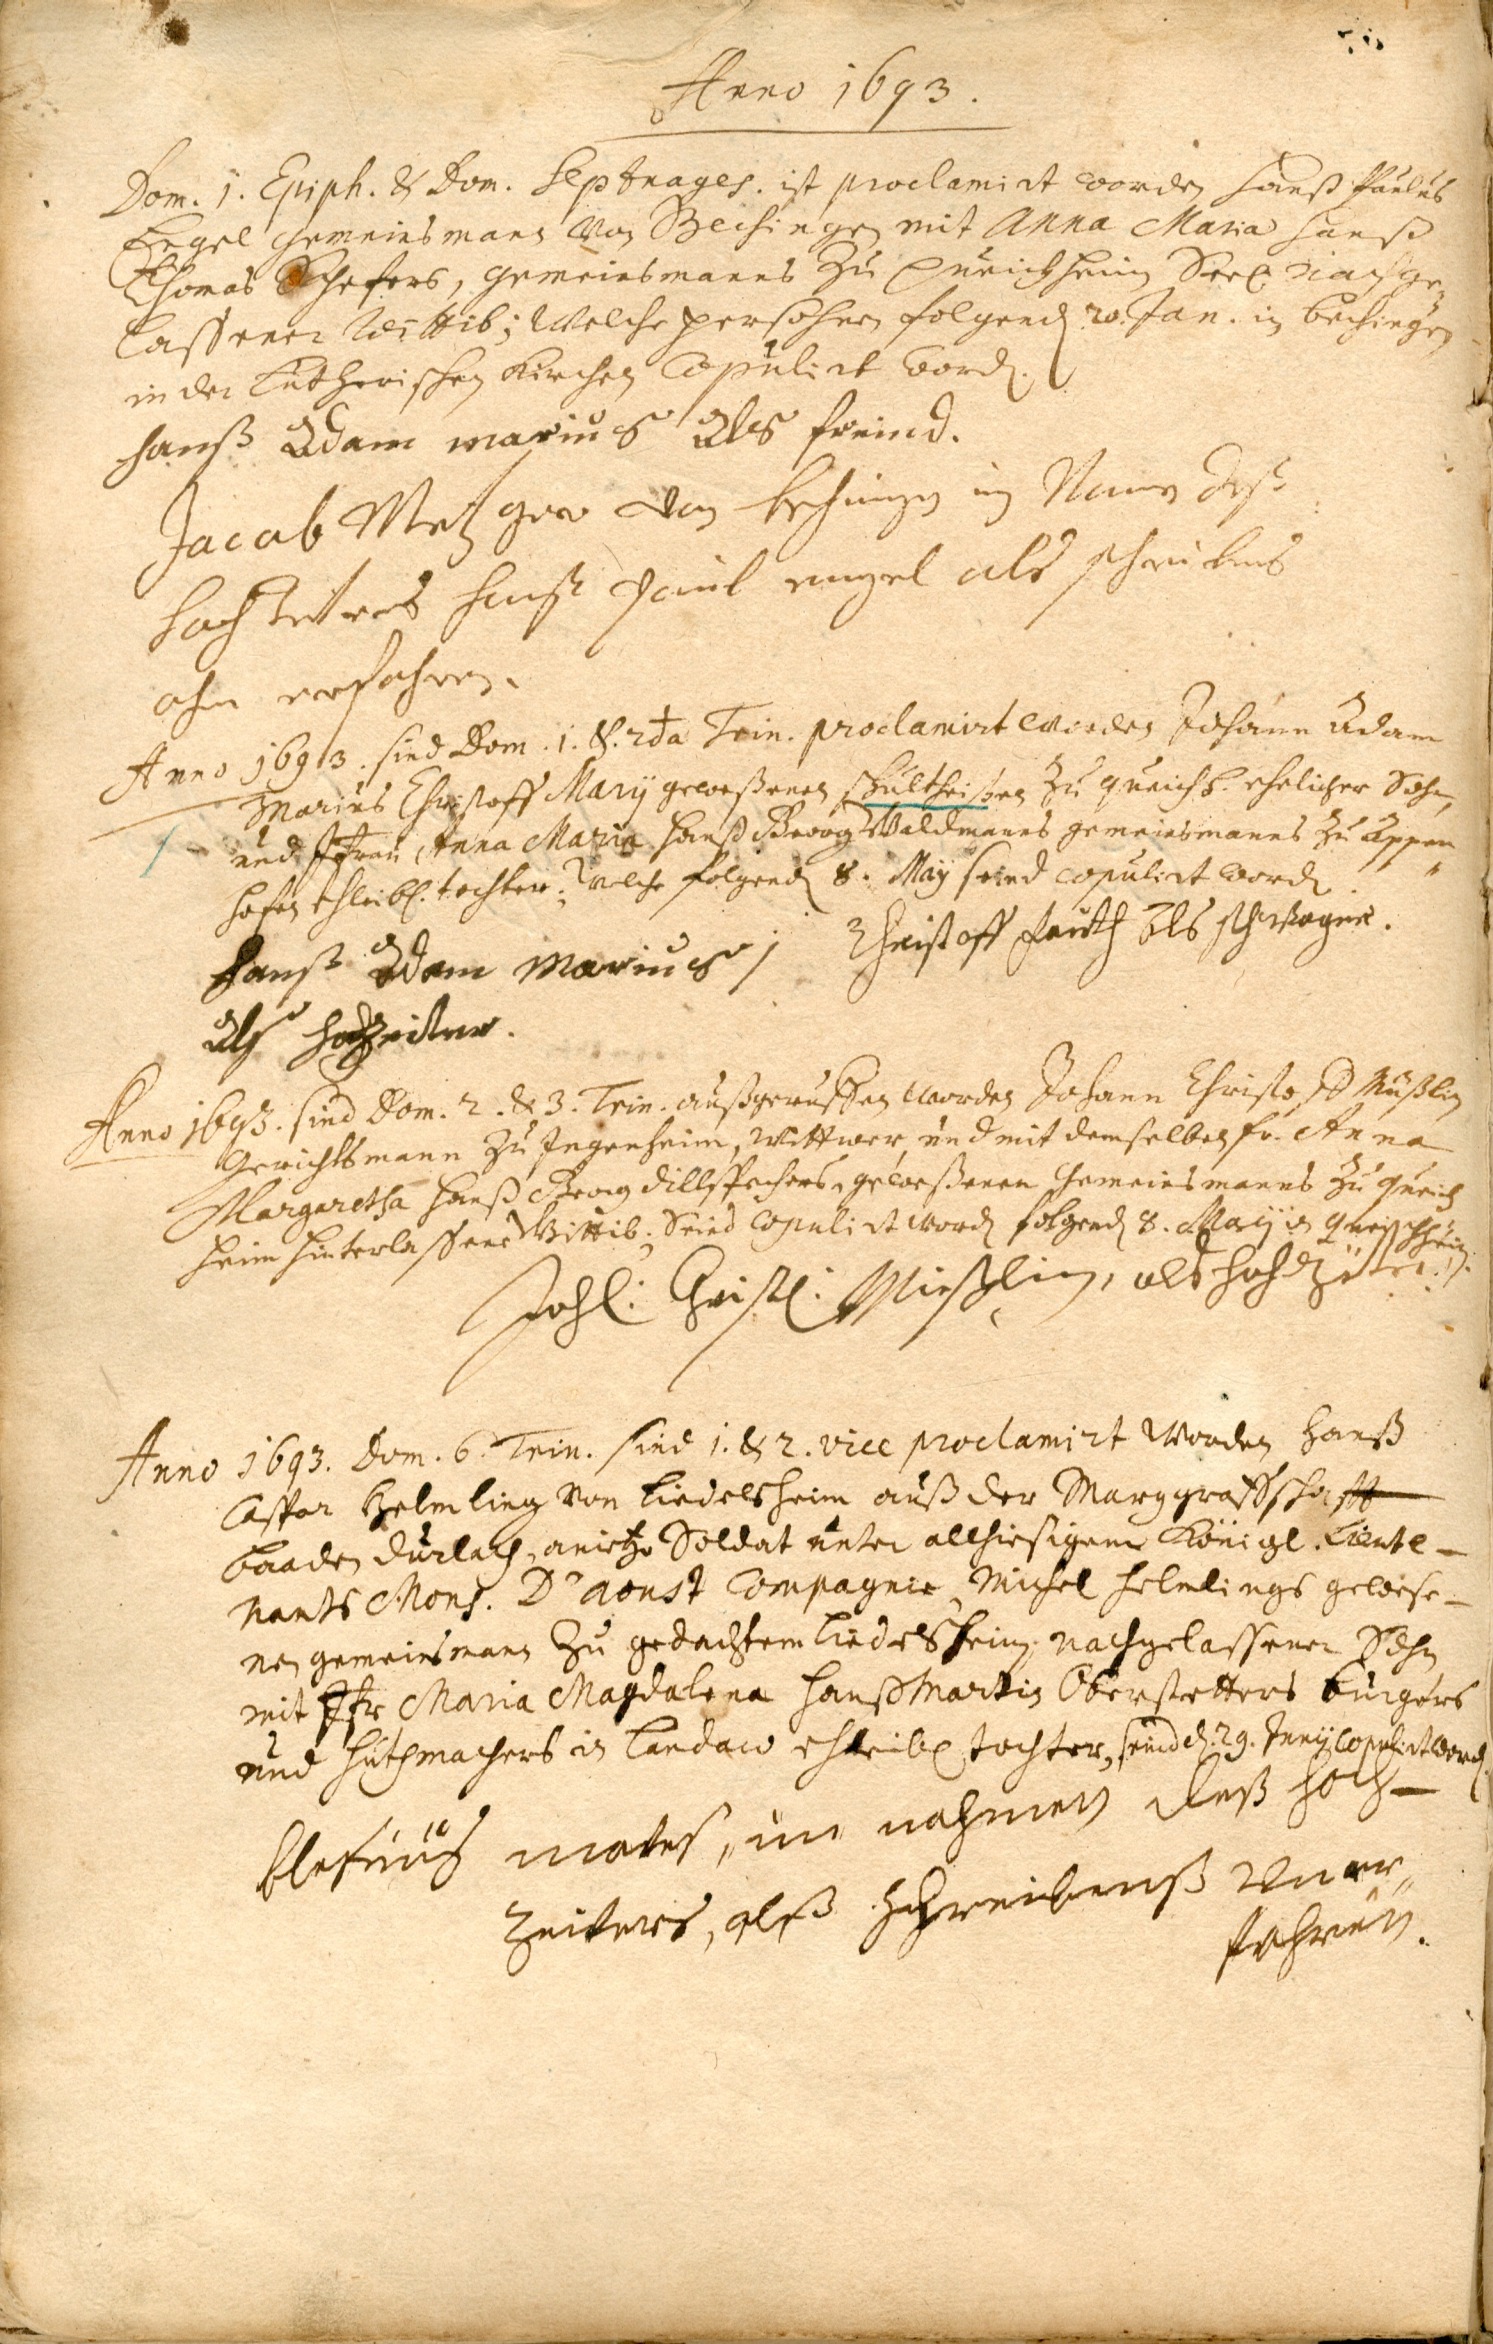 Anno 1693.
Dom. 1. Epiph. & Dom. Septuages. ist proclamirt worden Hanß Paulus
Engel gemeinsmann von Bechingen mit Anna Maria Hanß
Thomas Schefers, gemeinsmanns zu Queichheim Seel. nachge-
lassener Wittib; Welche persohnen folgend 20. Jan. in Bechingen
in der Lutherischen Kirchen Copulirt word.
Hanß Adam marius Als freind.
Jacob Metzger von bechingen im Namen deß
hochzeters Hanß Paul engel als schreibens
ohn erfahren.
Anno 1693. sind Dom. 1. & 2da Trin. proclamirt worden Johann Adam
Marius Christoff Marij geweßenen schultheißen zu queichh. ehelicher Sohn,
und Jfrau Anna Maria Hanß Georg Waldmanns gemeinsmanns zu Appen"
hofen ehleibl. tochter; Welche folgend 8. May seind copulirt word.
Hanß Adam Marius / Christoff fauth Als schwager.
Als hochzeiter.
Anno 1693. sind Dom. 2. & 3. Trin. außgeruffen worden Johann Christoph Müßlin
Gerichtsmann zu Ingenheim, Wittwer, und mit demselben fr. Anna
Margaretha Hanß Georg dillschechers geweßenen gemeinsmanns zu queich
heim hinterlassene Wittib; Seind Copulirt word folgend 8. Maij in queichheim.
Joh: Christ: Mießlin, als hochzeiter.
Anno 1693. Dom. 6. Trin. sind 1. & 2. vice proclamirt worden Hanß
Caspar Helmling von Liedelsheim auß der Marggraffschafft
baaden durlach, anietzo Soldat unter allhiesigem Königl. Lieute-
nants Mons. D'aoust Compagnie, Michel Helmlings gewese-
nen gemeinsmann zu gedachtem Liedelsheim, nachgelassener Sohn
mit Jfr Maria Magdalena Hanß Martin Oberstetters burgers
und huthmachers in Landaw ehleibl. tochter, seind d. 29. Junij copulirt word.
mates, im nahmen deß Hoch-
zeiters, alß schreibenß uner"
fahren.